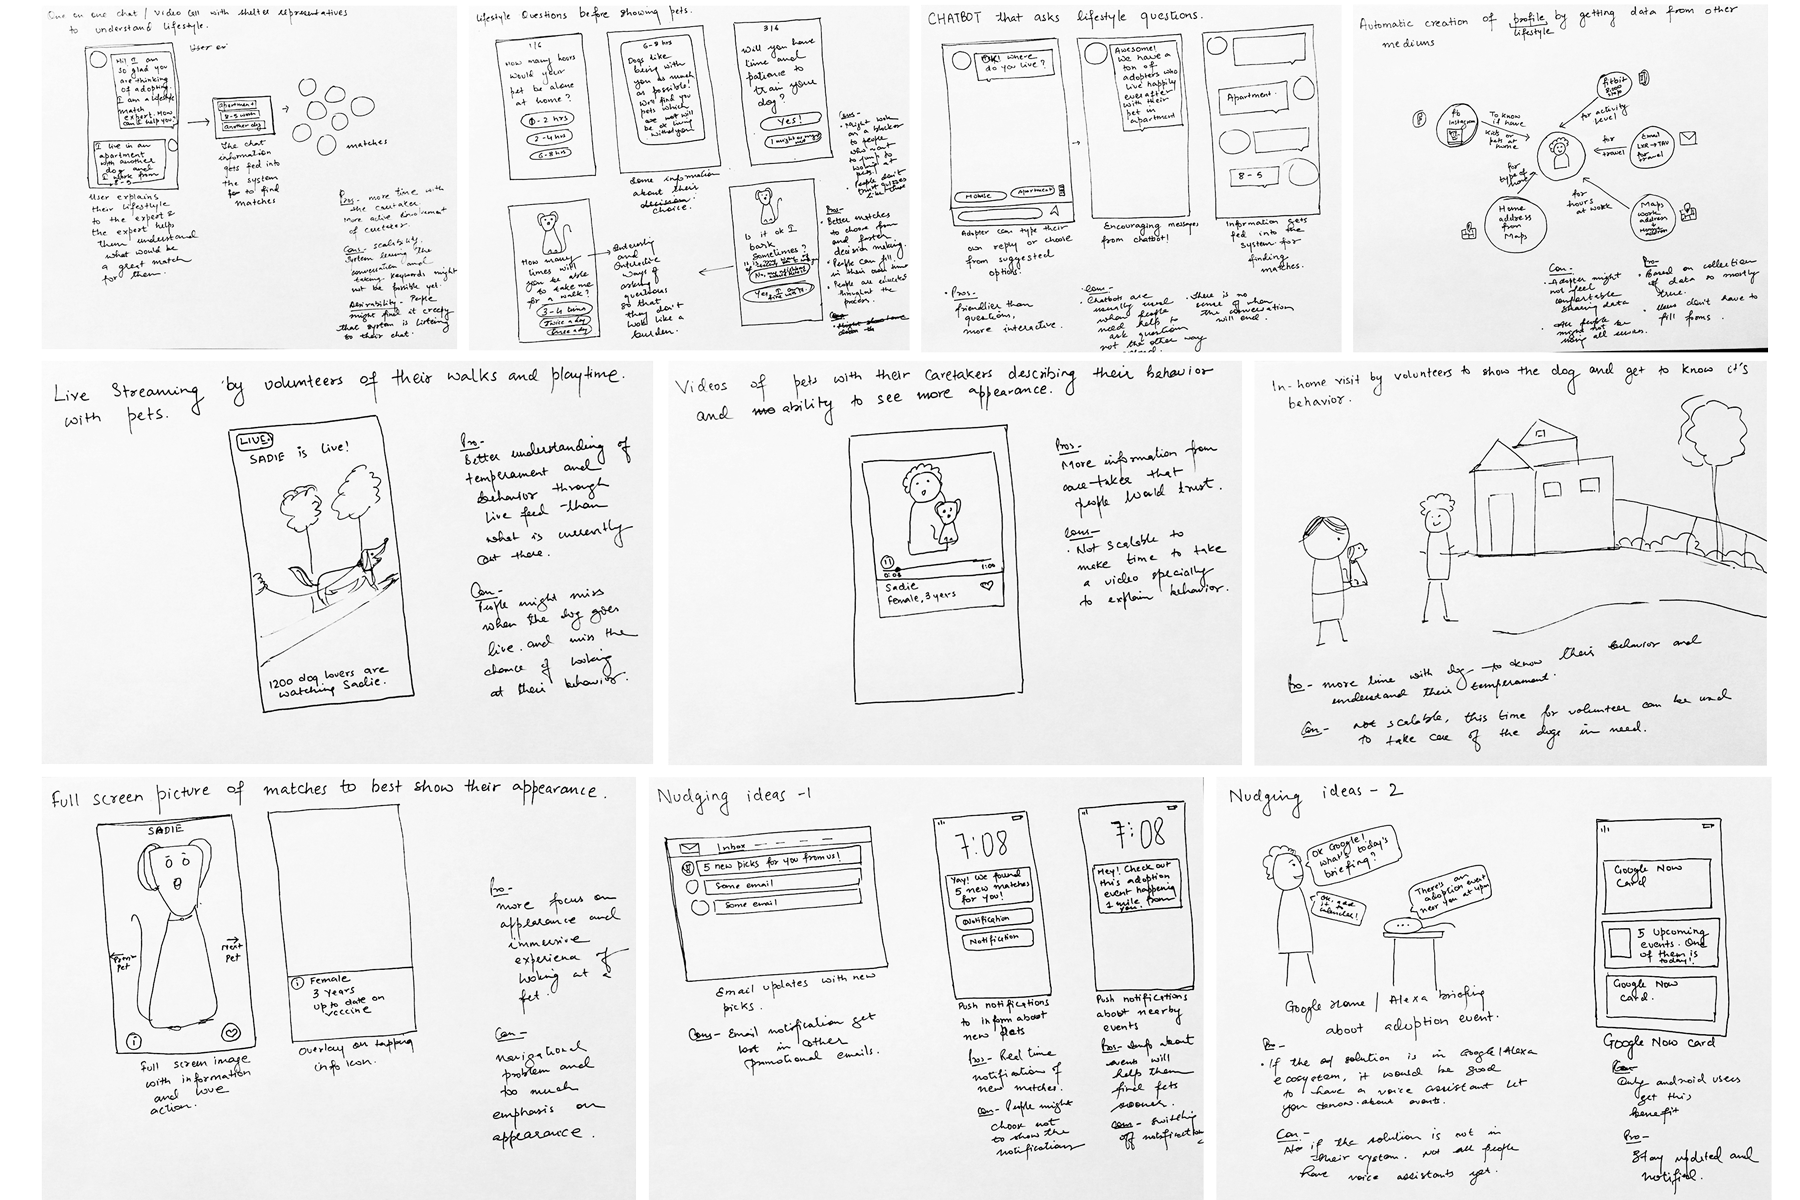 One on one chat / video call with shelter representatives
to understand lifestyle.
User on
Hi! I am
so glad you
are thinking
of adopting
I am a lifestyle
match
expert. How
can I help you?
I live in an
apartment
with another
dog and
I work from
8-5
apartment
8-5 work
another dog
The chat
information
gets fed into
the system
for to find
matches
matches
User explains
their lifestyle
to the expert &
the expert helps
them understand
what would be
a great match
for them.
Pros - more time with
the caretaker.
More active involvement
of caretaker
Cons - scalability.
System learning the
conversation and
taking keywords might
not be possible yet.
Desirability - People
might find it creepy
that system is listening
to their chat.
Lifestyle Questions before showing pets.
1/6
How many hours
would your
pet be alone
at home?
0-2 hrs
2-4 hrs
6-8 hrs
6-8 hrs
Dogs like
being with
you as much
as possible!
We'll find you
pets which
are
will
be ok being
without you
Some information
about their
decision choice.
3/6
Will you have
time and
patience to
train your
dog?
Yes!
I might not
Cons -
Might work
as a blocker
to people
who want
to jump to
looking at
pets!
People don't
trust
Is it ok I
bark
sometimes?
No, my
Yes I
Pros -
Better matches
to choose from
and faster
decision making.
People can fill
in their own time
People are educated
throughout the
process.
How many
times will
you be able
to take me
for a walk?
3-4 times
Twice a day
Once a day
and
Interactive
ways of
asking
questions
so that
they don't
look like a
burden.
CHATBOT that asks lifestyle questions.
OK! Where
do you live?
House
Apartment
Adopter can type their
own reply or choose
from suggested
options.
Pros -
friendlier than
questions,
more interactive.
Awesome!
We have a
ton of
adopters who
live happily
ever after
with their
pet in
apartment
Encouraging messages
from chatbot!
Cons -
Chatbots are
usually used
when people
need help to
ask question
not the other way
around
Apartment.
8 - 5
Information gets
fed into the
system for
finding
matches.
There is no
sense of when
the conversation
will end.
Automatic creation of profile by getting data from other
lifestyle
mediums
fb
Instagram
To know
if have
kids or
pets at
home
fitbit
8,000
steps
for
activity
level
for
travel
Email
LXR → TAV
for
travel
for
type of
home
Home
address
from
Maps
for
hours
at work
Maps
work
address
Con -
Adopter might
not feel
comfortable
sharing data
people
might not be
using all services.
Pro -
Based on collection
of data so mostly
true.
Users don't have to
fill forms.
Live Streaming by volunteers of their walks and playtime.
with pets.
LIVE
SADIE is live!
1200 dog lovers are
watching Sadie.
Pro -
Better understanding of
temperament and
behavior through
live feed than
what is currently
out there.
Con -
People might miss
when the dog goes
live and miss the
chance of looking
at their behavior.
Videos of pets with their caretakers describing their behavior
and ability to see more appearance.
0:08
1:00
Sadie
Female, 3 years
Pros
More information from
care-taker that
people would trust.
Cons -
Not scalable to
make time to take
a video specially
to explain behavior.
In-home visit by volunteers to show the dog and get to know it's
behavior.
Pro - more time with dog to know their behavior and
understand their temperament.
Con - not scalable, this time for volunteer can be used
to take care of the dogs in need.
Full screen picture of matches to best show their appearance.
SADIE
Prev
Pet
Next
Pet
Full screen image
with information
and love
action.
Female
3 years
up to date on
vaccine
Overlay on tapping
info icon.
Pro -
more focus on
appearance and
immersive
experience of
looking at a
pet.
Con -
navigational
problem and
too much
emphasis on
appearance.
Nudging ideas - 1
Inbox
5 new picks for you from us!
Some email
Some email
Email updates with new
picks.
Cons - Email notification get
lost in other
promotional emails.
7:08
Yay! We found
5 new matches
for you!
Notification
Notification
Push notifications
to inform about
new pets
Pros - Real time
notification of
new matches.
Con - People might
choose not
to show the
notifications
7:08
Hey! Check out
this adoption
event happening
1 mile from
you.
Push notifications
about nearby
events
Pros - Info about
events will
help them
find pets
sooner.
Cons - Switching
off notifications
Nudging ideas - 2
OK Google!
What's today's
briefing?
There's an
adoption event
near you at 4pm
Ok, add
it to
calendar!
Google Home / Alexa briefing
about adoption event.
Pro -
If the ad solution is in Google/Alexa
ecosystem, it would be good
to have a voice assistant let
you know about events.
Con -
if the solution is not in
their system. Not all people
have voice assistants yet.
Google Now
Card
5 Upcoming
events. One
of them is
today!
Google Now
Card.
Google Now card
Con
Only android users
get this
benefit
Pro -
Stay updated and
notified.